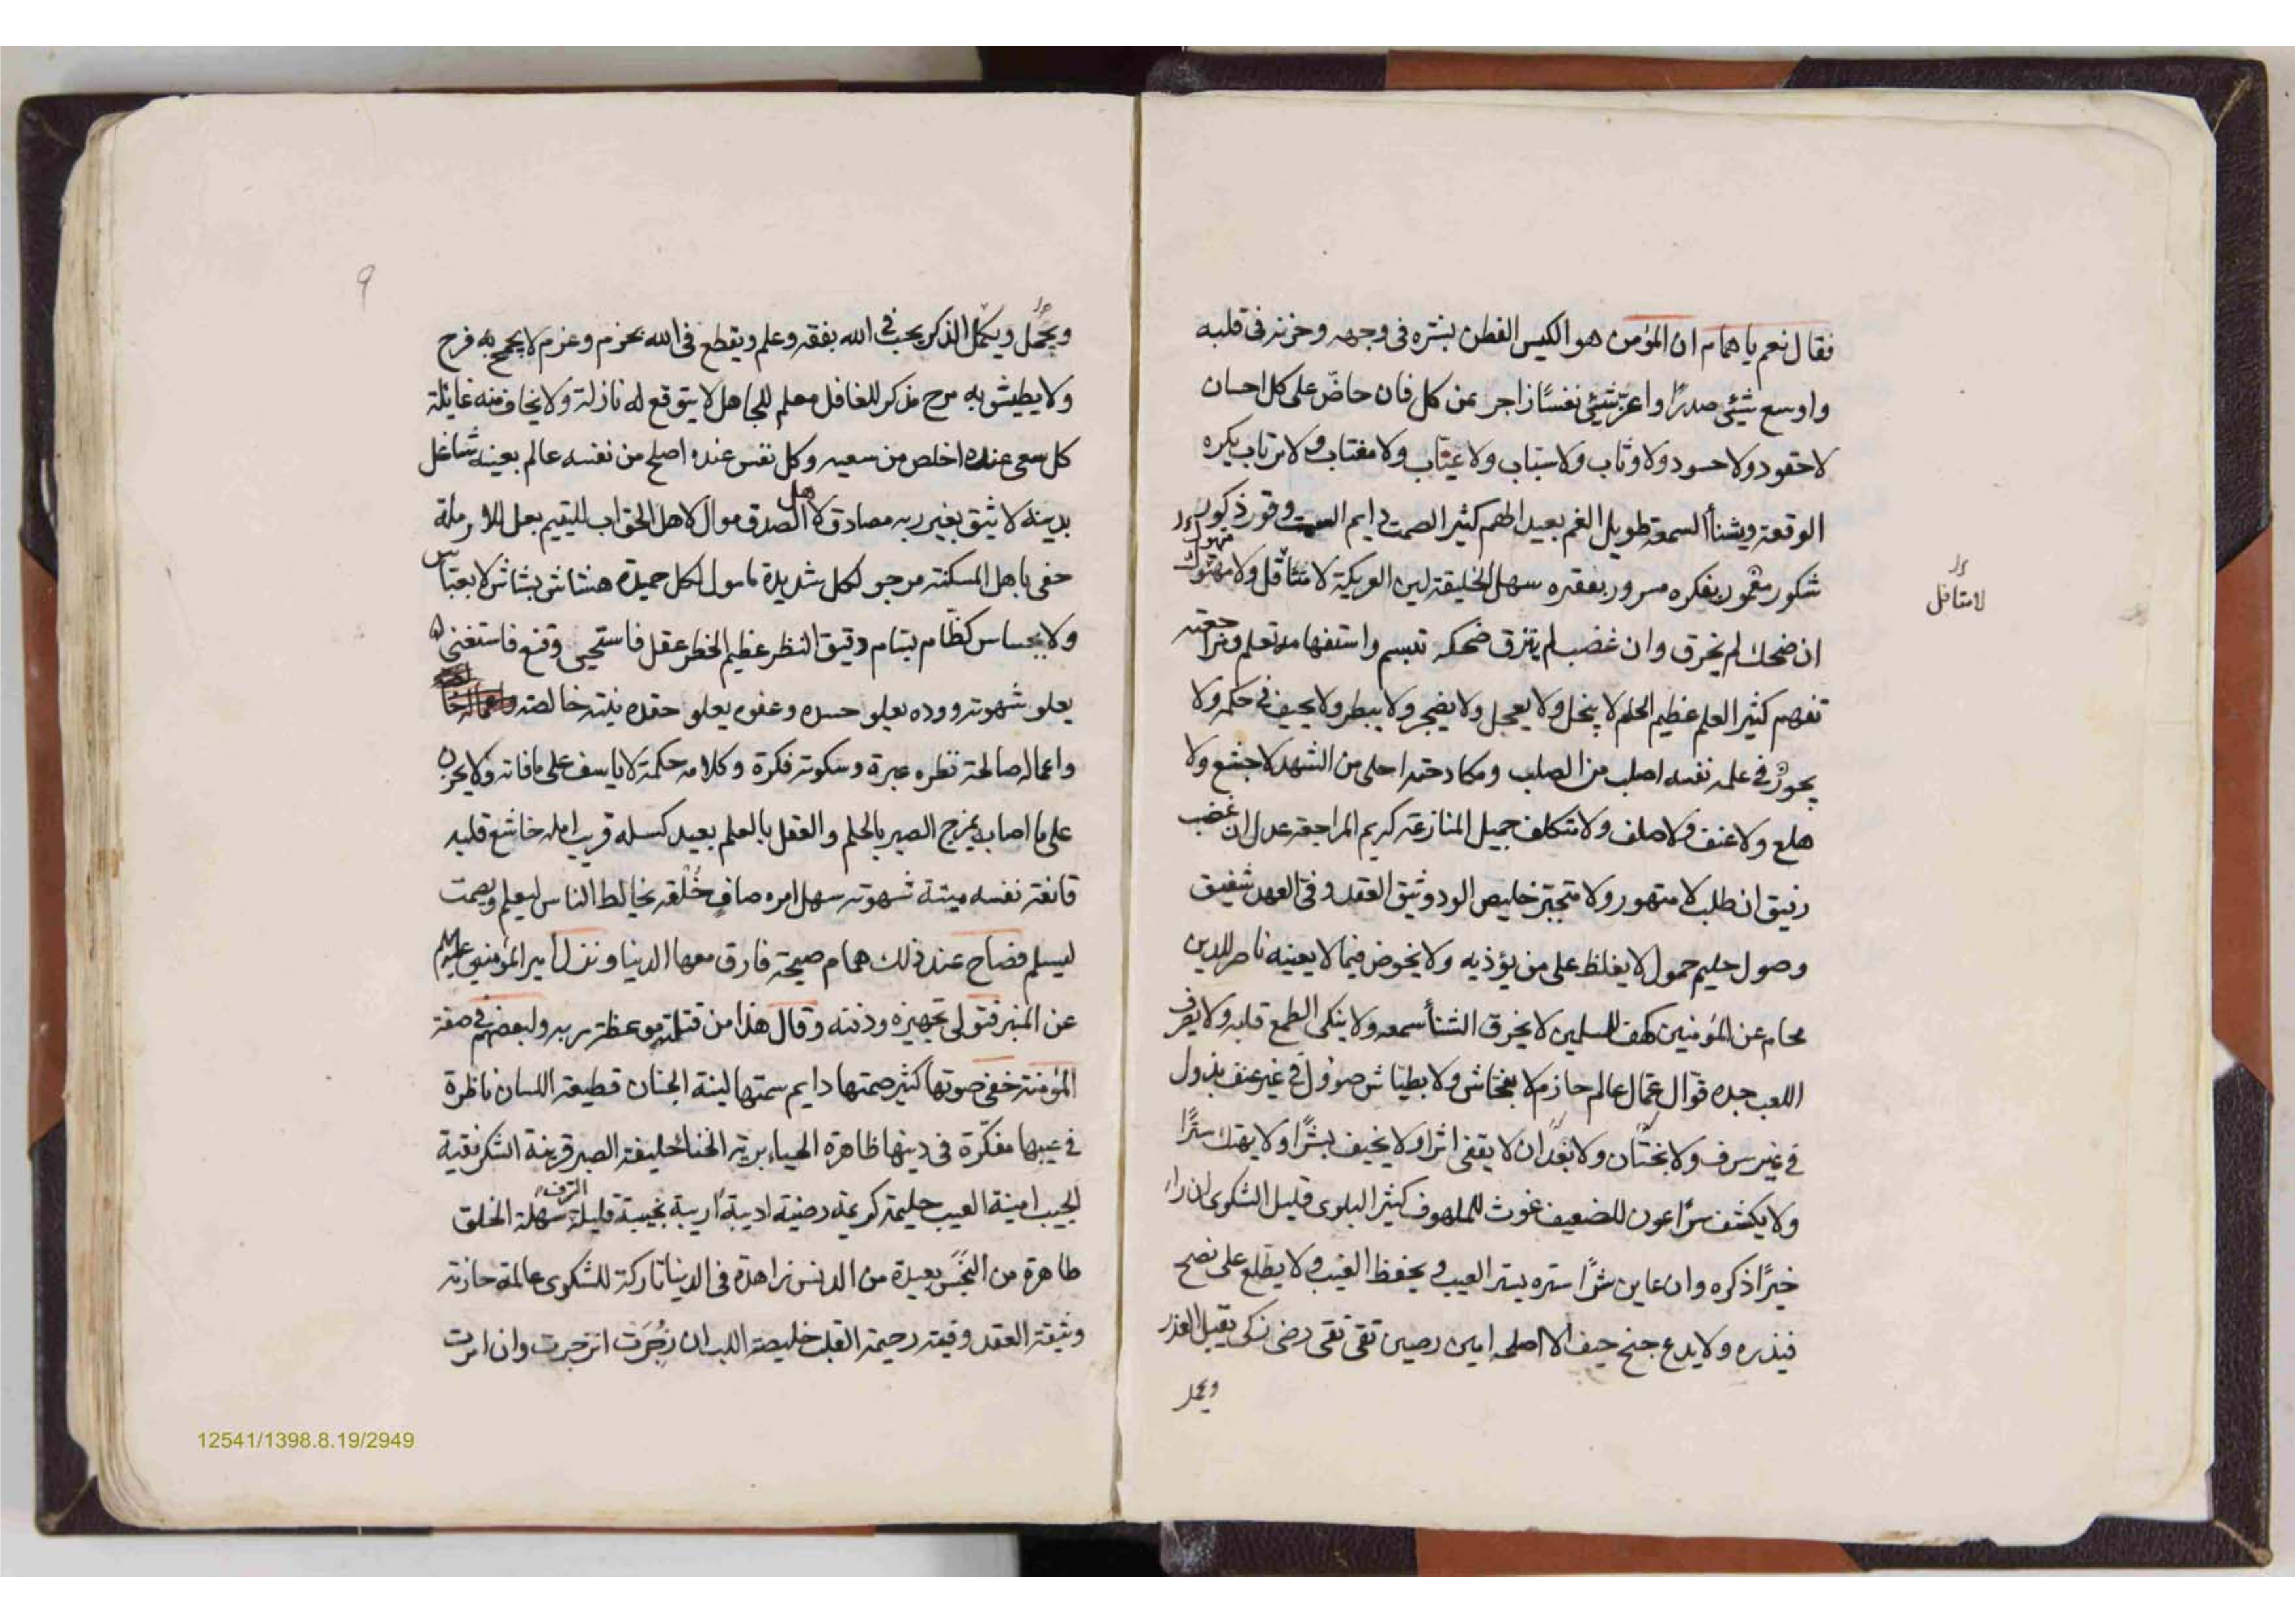 فقال نعم يا همام ان المؤمن هو الكيس الفطن بشره فى وجهه وحزنه فى قلبه
واوسع شيئ صدرًا واعزّ شيئ نفسًا زاجر عن كل فان حاضّ على كل احسان
لا حقود ولا حسود ولا وثاب ولا سبّاب ولا عيّاب ولا مغتاب ولا مرتاب يكره
الوقعة ويشنأ السمعة طويل الغم بعيد الهم كثير الصمت دايم وقور ذكور
شكور مغمور بفكره مسرور بفقره سهل الخليقة لين العريكة لا متثاقل ولا مهتوك
لا متافل
ان ضحك لم يخرق وان غضب لم ينزق ضحكه تبسم واستفهامه تعلم ومراجعته
تفهم كثير العلم عظيم الحلم لا يبخل ولا يعجل ولا يضجر ولا يبطر ولا يحيف فى حكمه ولا
يجور فى علمه نفسه اصلب من الصلب ومكادحته احلى من الشهد لا جشع ولا
هلع ولا عنف ولا صلف ولا متكلف جميل المنازعة كريم المراجعة عدل ان غضب
رفيق ان طلب لا متهور ولا متجبّر خليص الود وثيق العقد وفى العهد شفيق
وصول حليم حمول لا يغلظ على من يؤذيه ولا يخوض فيما لا يعينه ناصر للدين
محام عن المؤمنين كهف للمسلمين لا يخرق الشنأ سمعه ولا ينكى الطمع قلبه ولا يصرف
اللعب جده قوّال عمّال عالم حازم لا بفحّاش ولا بطيّاش صؤول فى غير عنف بذول
فى غير سرف ولا بختّان ولا بغدّار لا يقفى اثرا ولا يخيف بشرًا ولا يهتك سترًا
ولا يكشف سرًّا عون للضعيف غوث للملهوف كثير البلوى قليل الشكوى ان راى
خيرًا ذكره وان عاين شرًّا ستره يستر العيب ويحفظ الغيب ولا يطّلع على نصح
فيذره ولا يدع جنح حيف الا اصلحه امين رصين تقى نقى رضى زكى يقبل العذر
ويجمل
٩
ويجمّل ويكمّل الذكر يحب فى الله بفقه وعلم ويقطع فى الله بحزم وعزم لا يجمح به فرح
ولا يطيش به مرح مذكر للغافل معلم للجاهل لا يتوقع له نازلة ولا يخاف منه غايلة
كل سعى عنده اخلص من سعيه وكل نفس عنده اصلح من نفسه عالم بعيبه شاغل
بدينه لا يثق بغير ربه مصادق لاهل الصدق موال لاهل الحق اب لليتيم بعل للارملة
حفى باهل المسكنة مرجو لكل شديدة مامول لكل حميدة هشاش بشاش لا بعبّاس
ولا بجساس كظّام بسّام دقيق النظر عظيم الخطر عقل فاستحيى وقنع فاستغنى
يعلو شهوته ووده يعلو حسده وعفوه يعلو حقده نيته خالصة
واعماله صالحة نظره عبرة وسكوته فكرة وكلامه حكمة لا ياسف على مافاته ولا يحزن
على ما اصابه يمزج الصبر بالحلم والعقل بالعلم بعيد كسله قريب امله خاشع قلبه
قانعة نفسه ميتة شهوته سهل امره صافٍ خُلقه يخالط الناس ليعلم ويصمت
ليسلم فصاح عند ذلك همام صيحة فارق معها الدنيا ونزل امير المؤمنين عليه السلم
عن المنبر فتولى تجهيزه ودفنه وقال هذا من قتلته موعظة ربه ولبعضهم فى صفة
المؤمنة خفى صوتها كثير صمتها دايم سمتها لينة الجنان قطيعة اللسان ناظرة
فى عيبها مفكّرة فى دينها ظاهرة الحياء برية الخنا خليفة الصبر قرينة الشكر نقية
الجيب امينة الغيب حليمة كريمة رضية اديبة اريبة نجيبة قليلة الترف سهلة الخلق
طاهرة من النجَس بعيدة من الدنس زاهدة فى الدنيا تاركة للشكوى عالمة حازمة
وثيقة العقد وفية رحيمة القلب خليصة اللب ان زُجرَت انزجرت وان امرت
12541/1398.8.19/2949